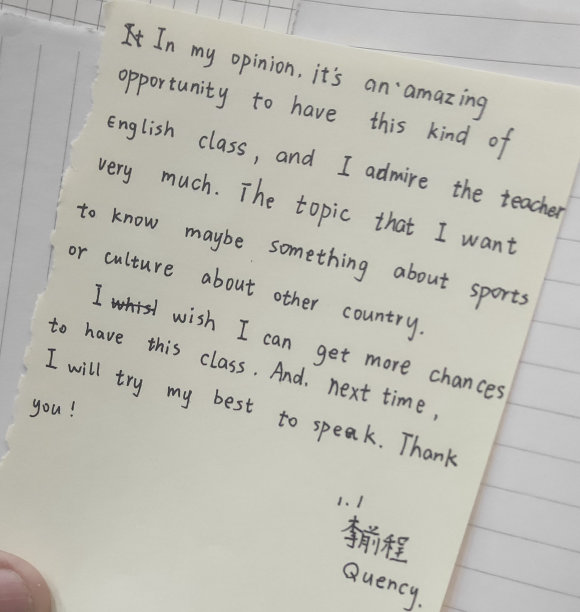 It In my opinion, it's an amazing
opportunity to have this kind of
English class, and I admire the teacher
very much. The topic that I want
to know maybe something about sports
or culture about other country.
I whisl wish I can get more chances
to have this class. And. next time,
I will try my best to speak. Thank
you!
1.1
李前程
Quency.